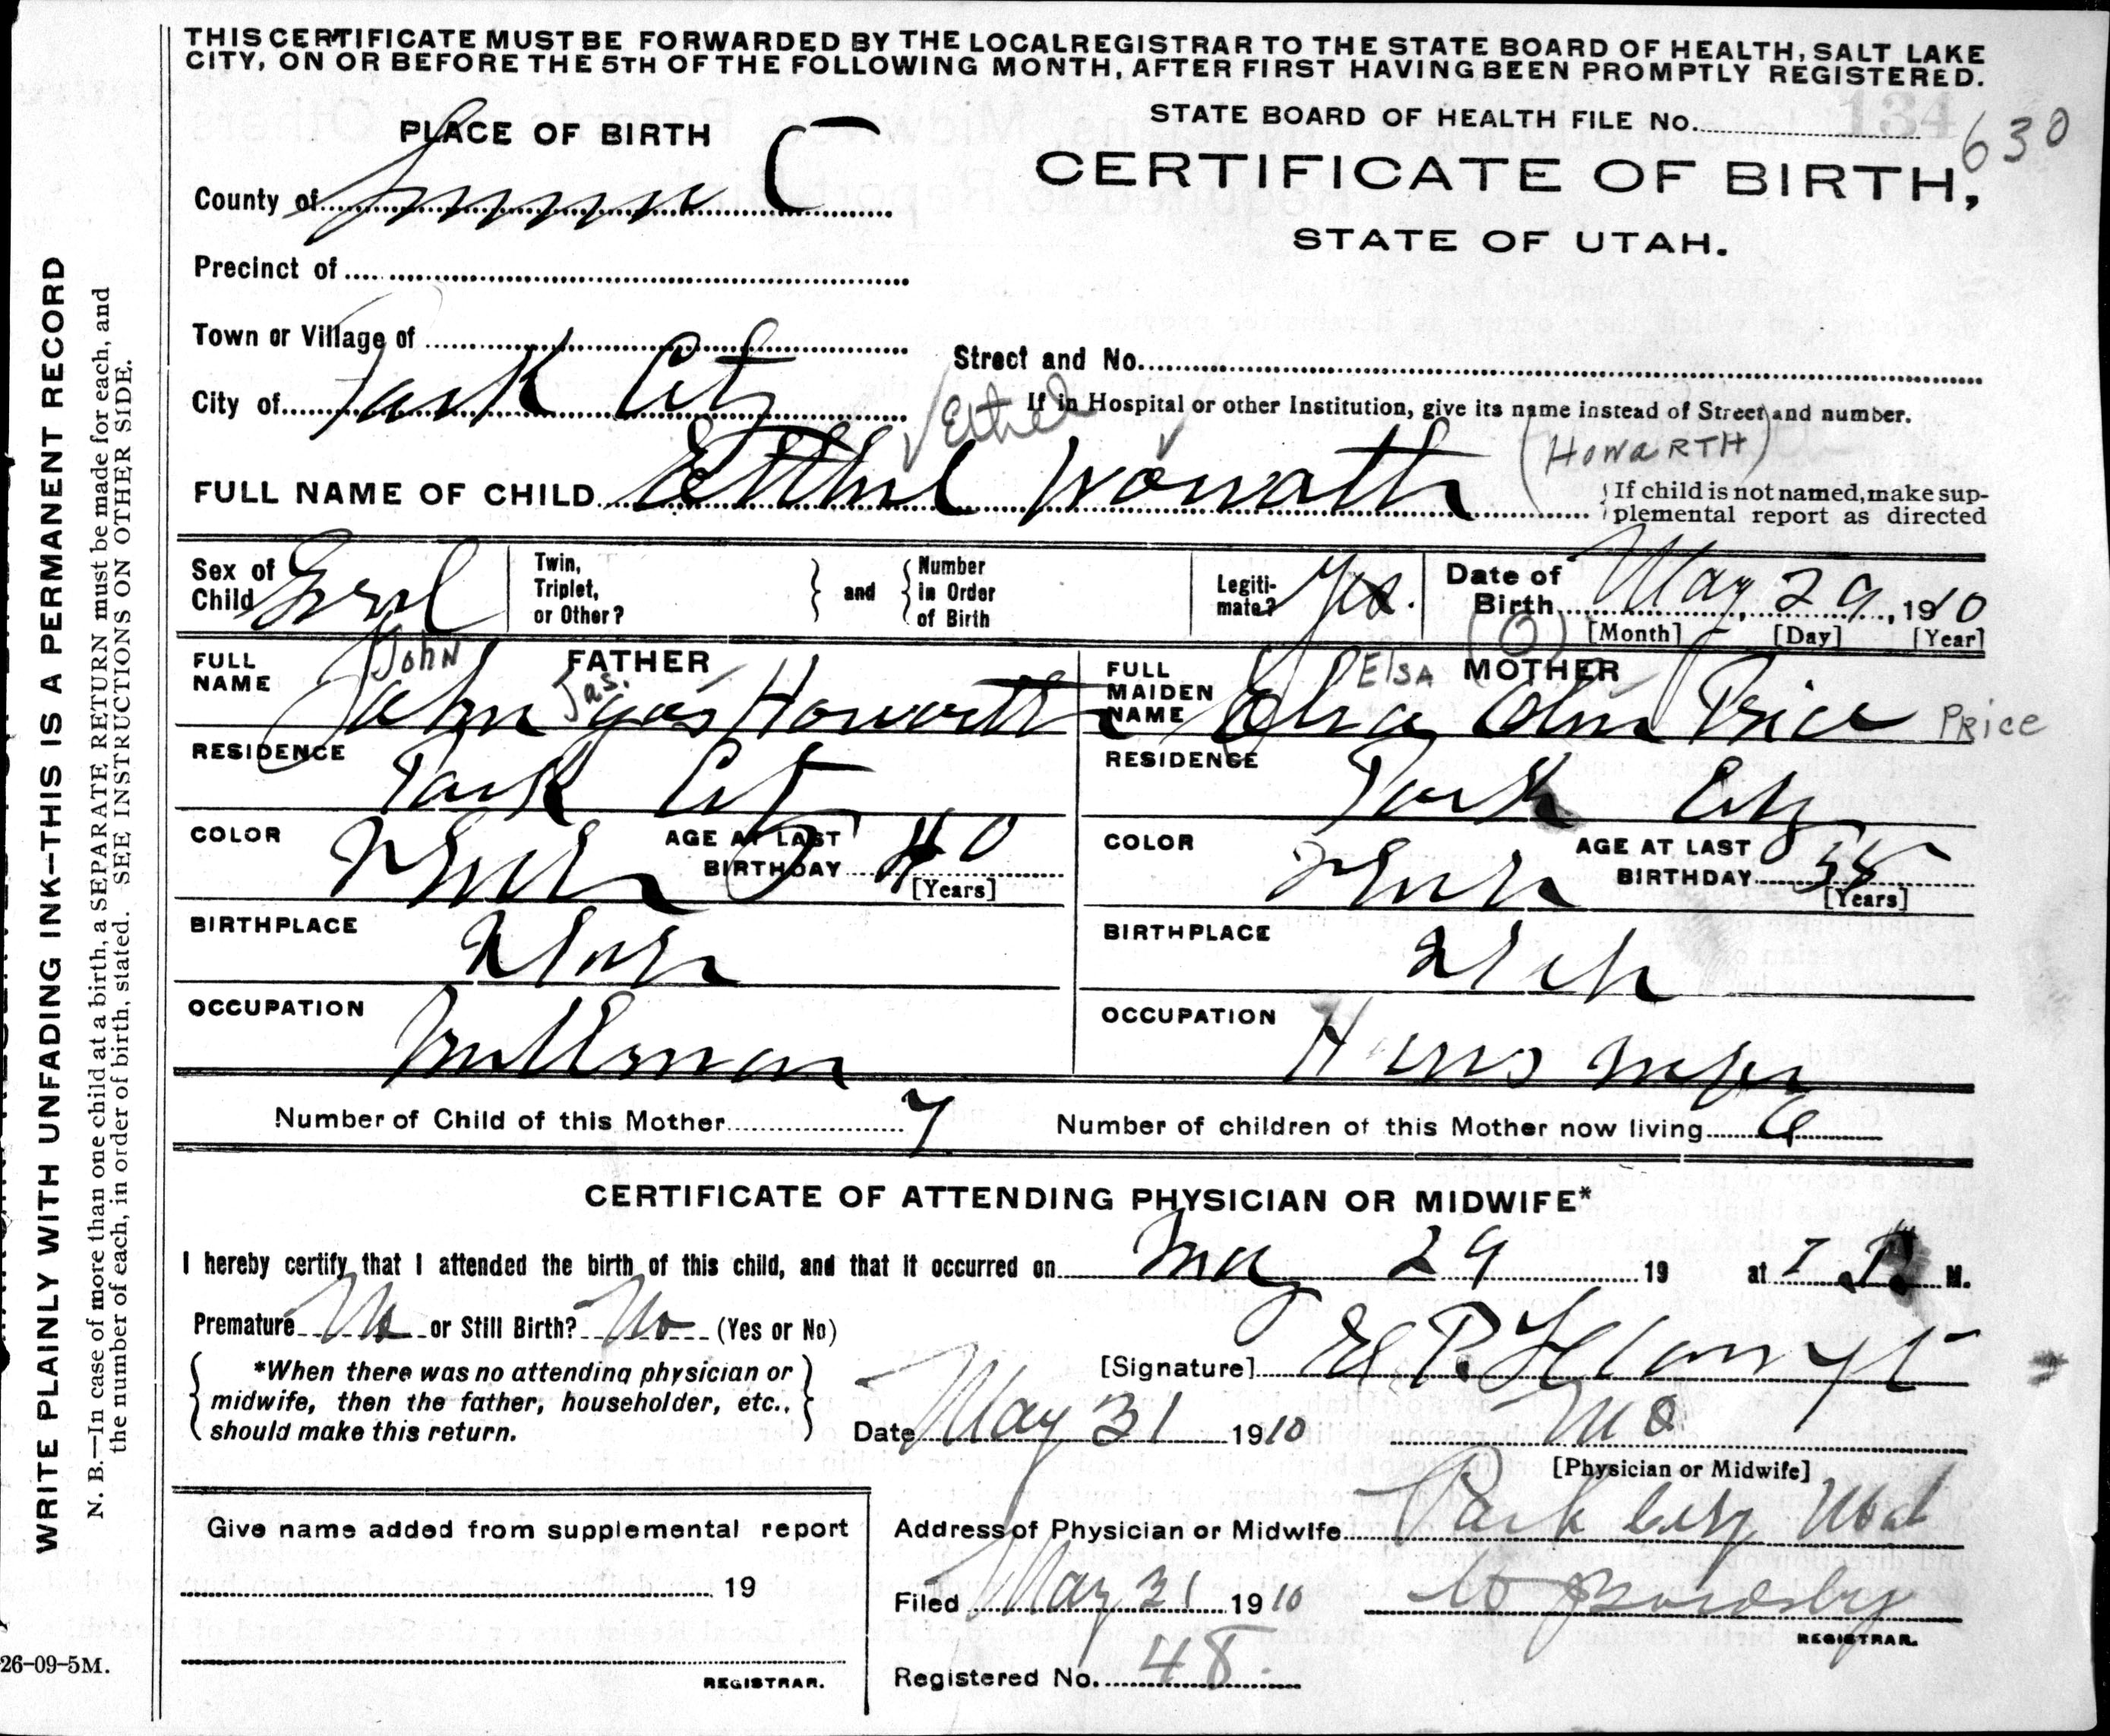 THIS CERTIFICATE MUST BE FORWARDED BY THE LOCAL REGISTRAR TO THE STATE BOARD OF HEALTH, SALT LAKE
CITY, ON OR BEFORE THE 5TH OF THE FOLLOWING MONTH, AFTER FIRST HAVING BEEN PROMPTLY REGISTERED.
STATE BOARD OF HEALTH FILE No. 134 630
PLACE OF BIRTH
CERTIFICATE OF BIRTH,
County of
STATE OF UTAH.
Precinct of
Town or Village of
Street and No.
City of Park City
If in Hospital or other Institution, give its name instead of Street and number.
Ethel
(HowaRTH)
FULL NAME OF CHILD Ethel Howarth
If child is not named, make sup-
plemental report as directed
Sex of Child Girl
Twin, Triplet, or Other? and Number in Order of Birth
Legiti-mate? Yes.
Date of Birth May 29, 1910
[Month] [Day] [Year]
John Jas.
FULL NAME FATHER John Jas Howarth
(O) ElsA
FULL MAIDEN NAME MOTHER Price PRice
RESIDENCE Park City
RESIDENCE Park City
COLOR White AGE AT LAST BIRTHDAY 40 [Years]
COLOR White AGE AT LAST BIRTHDAY [Years]
BIRTHPLACE Utah
BIRTHPLACE Utah
OCCUPATION Millman
OCCUPATION
Number of Child of this Mother 7
Number of children of this Mother now living 6
CERTIFICATE OF ATTENDING PHYSICIAN OR MIDWIFE*
I hereby certify that I attended the birth of this child, and that it occurred on May 29 19 at 7 P. M.
Premature No or Still Birth? No (Yes or No)
[Signature]
*When there was no attending physician or
midwife, then the father, householder, etc.,
should make this return.
Date May 31 1910
MD
[Physician or Midwife]
Give name added from supplemental report
19
REGISTRAR.
Address of Physician or Midwife Park City Utah
Filed May 31 1910
REGISTRAR.
Registered No. 48.
WRITE PLAINLY WITH UNFADING INK—THIS IS A PERMANENT RECORD
N. B.—In case of more than one child at a birth, a SEPARATE RETURN must be made for each, and
the number of each, in order of birth, stated. SEE INSTRUCTIONS ON OTHER SIDE.
26-09-5M.